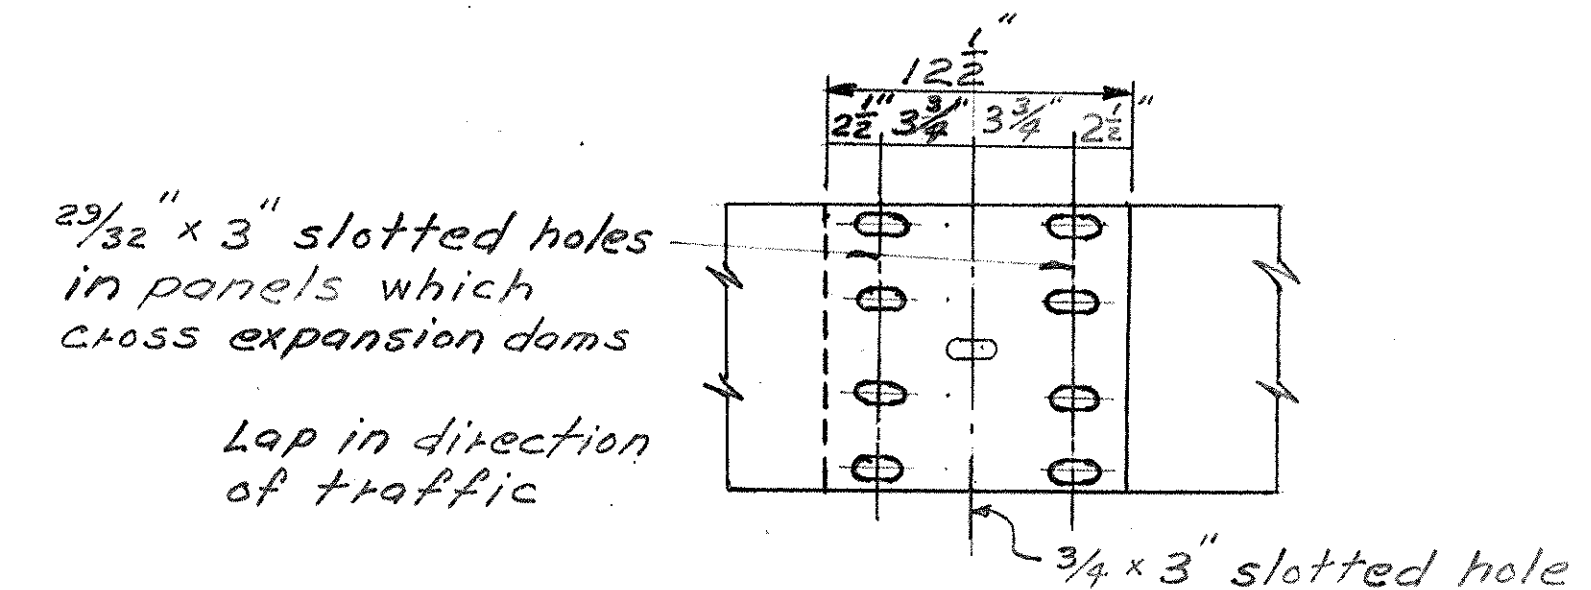 12 1/2"
2 1/2" 3 3/4" 3 3/4" 2 1/2"
29/32" x 3" slotted holes
in panels which
cross expansion dams
Lap in direction
of traffic
3/4 x 3" slotted hole